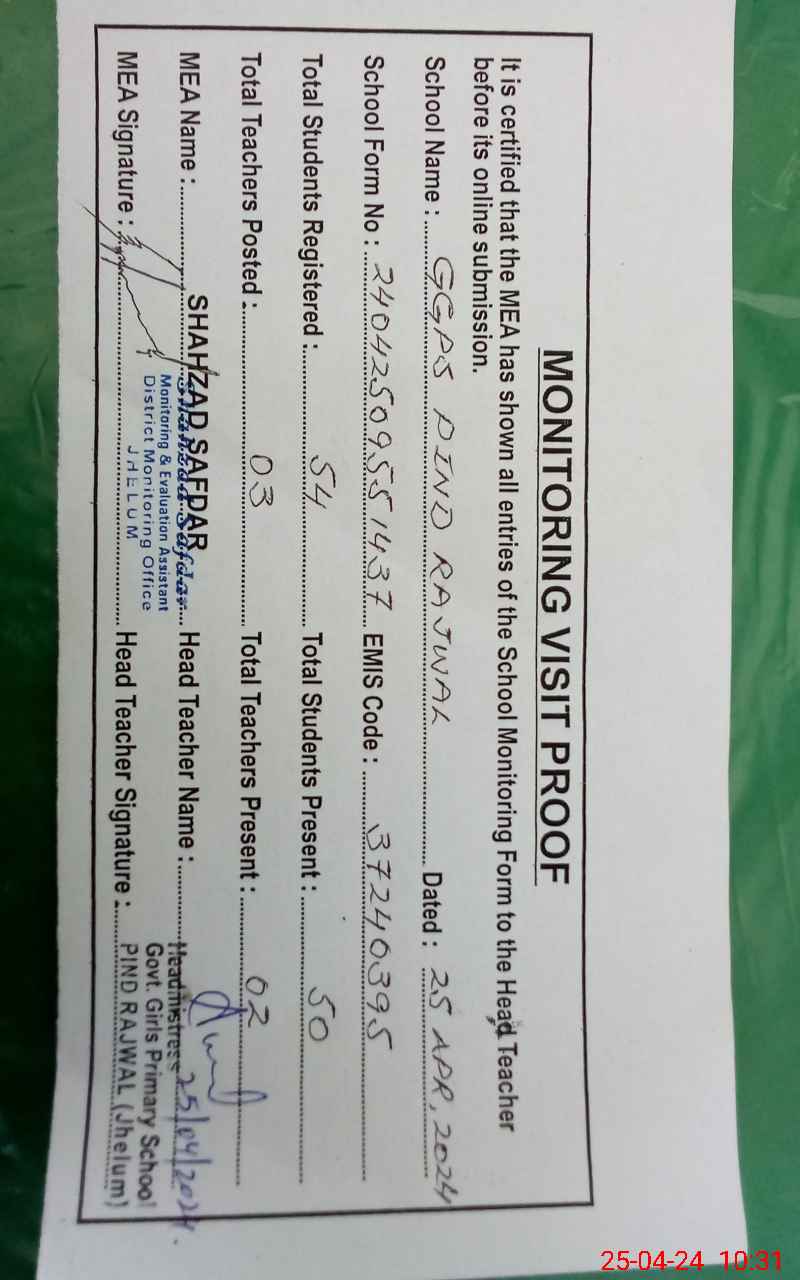 MONITORING VISIT PROOF
It is certified that the MEA has shown all entries of the School Monitoring Form to the Head Teacher
before its online submission.
School Name : GGPS PIND RAJWAL Dated : 25 APR, 2024
School Form No : 24042509551437 EMIS Code : 37240395
Total Students Registered : 54 Total Students Present : 50
Total Teachers Posted : 03 Total Teachers Present : 02
MEA Name : SHAHZAD SAFDAR Head Teacher Name :
Shahzad Safdar
Monitoring & Evaluation Assistant
District Monitoring Office
JHELUM
Headmistress 25/04/2024.
Govt. Girls Primary School
PIND RAJWAL (Jhelum)
MEA Signature : Head Teacher Signature :
25-04-24 10:31